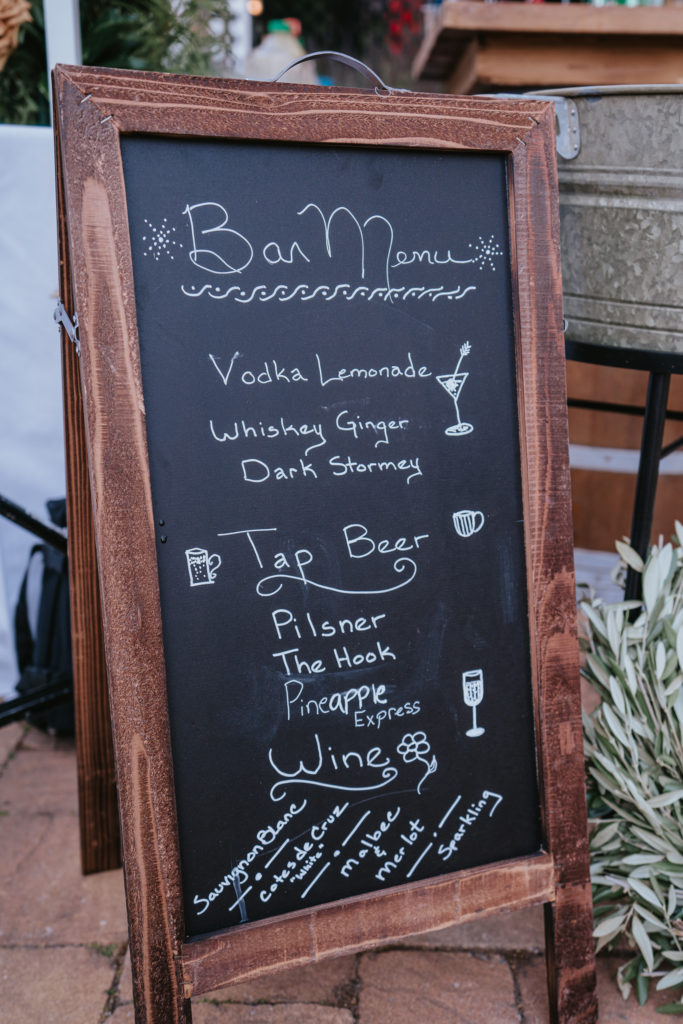 Bar Menu
Vodka Lemonade
Whiskey Ginger
Dark Stormey
Tap Beer
Pilsner
The Hook
Pineapple
Express
Wine
Sauvignon Blanc
Cotes de Cruz
"White"
Malbec
&
Merlot
Sparkling